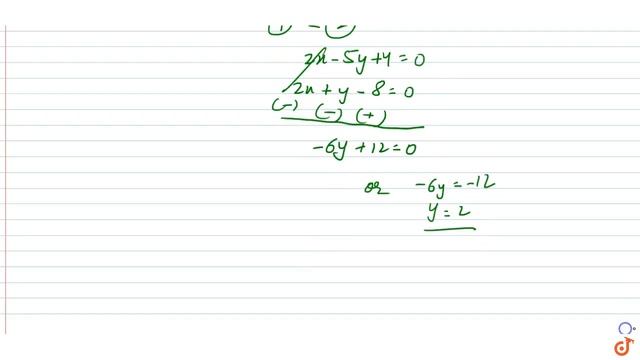 2x - 5y + 4 = 0
2x + y - 8 = 0
(-) (-) (+)
-6y + 12 = 0
or -6y = -12
y = 2